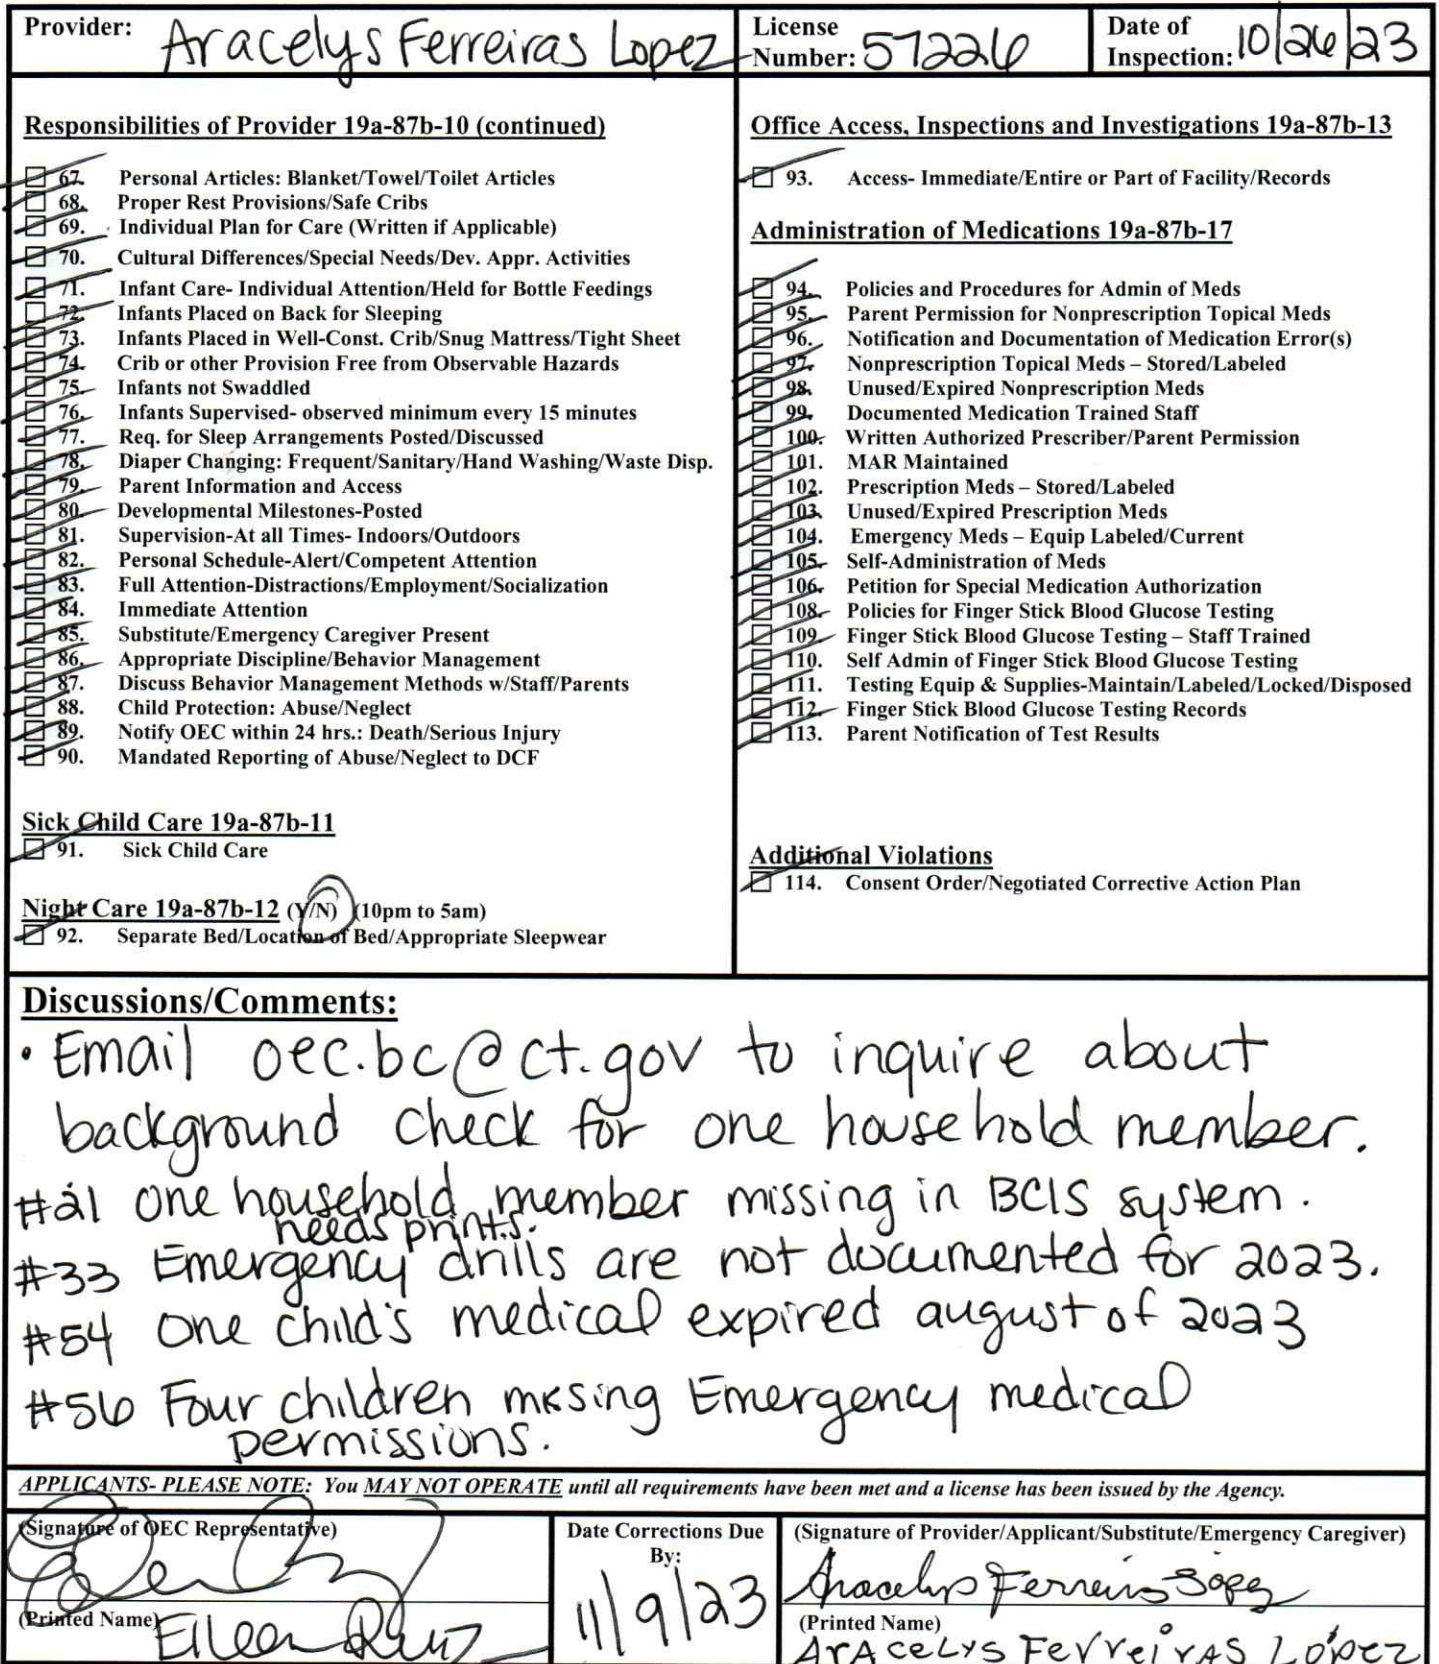 Provider: Aracelys Ferreiras Lopez
License Number: 57226
Date of Inspection: 10/26/23
Responsibilities of Provider 19a-87b-10 (continued)
67. Personal Articles: Blanket/Towel/Toilet Articles
68. Proper Rest Provisions/Safe Cribs
69. Individual Plan for Care (Written if Applicable)
70. Cultural Differences/Special Needs/Dev. Appr. Activities
71. Infant Care- Individual Attention/Held for Bottle Feedings
72. Infants Placed on Back for Sleeping
73. Infants Placed in Well-Const. Crib/Snug Mattress/Tight Sheet
74. Crib or other Provision Free from Observable Hazards
75. Infants not Swaddled
76. Infants Supervised- observed minimum every 15 minutes
77. Req. for Sleep Arrangements Posted/Discussed
78. Diaper Changing: Frequent/Sanitary/Hand Washing/Waste Disp.
79. Parent Information and Access
80. Developmental Milestones-Posted
81. Supervision-At all Times- Indoors/Outdoors
82. Personal Schedule-Alert/Competent Attention
83. Full Attention-Distractions/Employment/Socialization
84. Immediate Attention
85. Substitute/Emergency Caregiver Present
86. Appropriate Discipline/Behavior Management
87. Discuss Behavior Management Methods w/Staff/Parents
88. Child Protection: Abuse/Neglect
89. Notify OEC within 24 hrs.: Death/Serious Injury
90. Mandated Reporting of Abuse/Neglect to DCF
Sick Child Care 19a-87b-11
91. Sick Child Care
Night Care 19a-87b-12 (Y/N) (10pm to 5am)
92. Separate Bed/Location of Bed/Appropriate Sleepwear
Office Access, Inspections and Investigations 19a-87b-13
93. Access- Immediate/Entire or Part of Facility/Records
Administration of Medications 19a-87b-17
94. Policies and Procedures for Admin of Meds
95. Parent Permission for Nonprescription Topical Meds
96. Notification and Documentation of Medication Error(s)
97. Nonprescription Topical Meds – Stored/Labeled
98. Unused/Expired Nonprescription Meds
99. Documented Medication Trained Staff
100. Written Authorized Prescriber/Parent Permission
101. MAR Maintained
102. Prescription Meds – Stored/Labeled
103. Unused/Expired Prescription Meds
104. Emergency Meds – Equip Labeled/Current
105. Self-Administration of Meds
106. Petition for Special Medication Authorization
108. Policies for Finger Stick Blood Glucose Testing
109. Finger Stick Blood Glucose Testing – Staff Trained
110. Self Admin of Finger Stick Blood Glucose Testing
111. Testing Equip & Supplies-Maintain/Labeled/Locked/Disposed
112. Finger Stick Blood Glucose Testing Records
113. Parent Notification of Test Results
Additional Violations
114. Consent Order/Negotiated Corrective Action Plan
Discussions/Comments:
• Email oec.bc@ct.gov to inquire about
background check for one household member.
#21 One household member missing in BCIS system.
needs prints.
#33 Emergency drills are not documented for 2023.
#54 One child's medical expired august of 2023
#56 Four children missing Emergency medical
permissions.
APPLICANTS- PLEASE NOTE: You MAY NOT OPERATE until all requirements have been met and a license has been issued by the Agency.
(Signature of OEC Representative)
(Printed Name) Eileen Ruiz
Date Corrections Due
By:
11/9/23
(Signature of Provider/Applicant/Substitute/Emergency Caregiver)
Aracelys Ferreiras Lopez
(Printed Name)
ArAceLYS FerreirAS LóPez